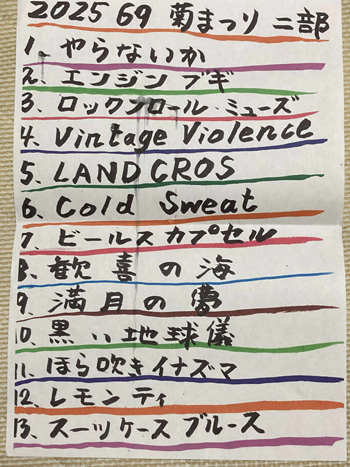 2025 69 菊まつり 二部
1. やらないか
2. エンジン ブギ
3. ロックンロール・ミューズ
4. Vintage Violence
5. LAND CROS
6. Cold Sweat
7. ビールス カプセル
8. 歓喜の海
9. 満月の夢
10. 黒い地球儀
11. ほら吹きイナズマ
12. レモンティ
13. スーツケース ブルース